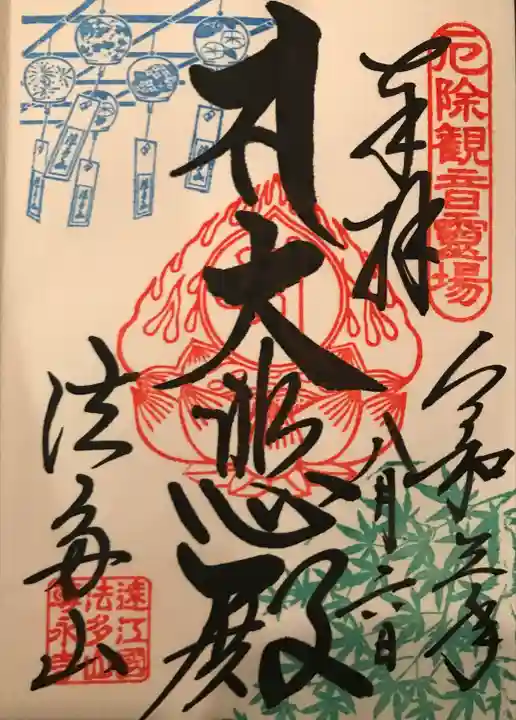 厄除観音靈場
奉拝
令和三年
八月六日
大悲殿
法多山
遠江國
法多山
尊永寺